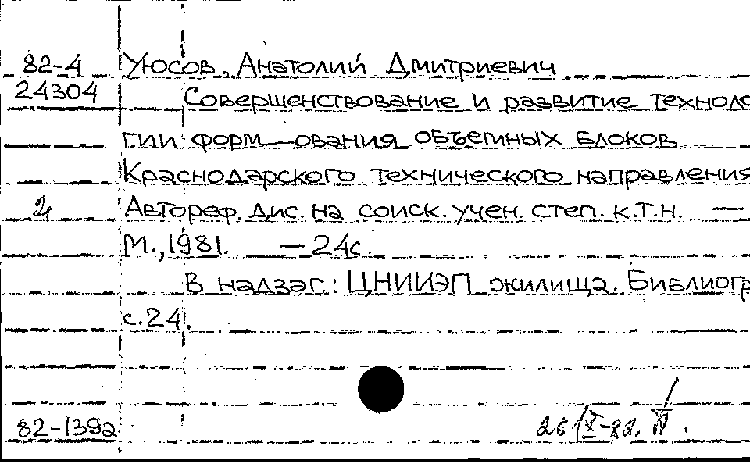 82-4 Уюсов, Анатолий Дмитриевич
24304 Совершенствование и развитие техноло
гии форм—ования объемных блоков
Краснодарского технического направления
2 Автореф. дис. на соиск. учен. степ. к.т.н. —
М., 1981. — 24с
В надзаг: ЦНИИЭП жилища. Библиогр
с. 24.
82-1392